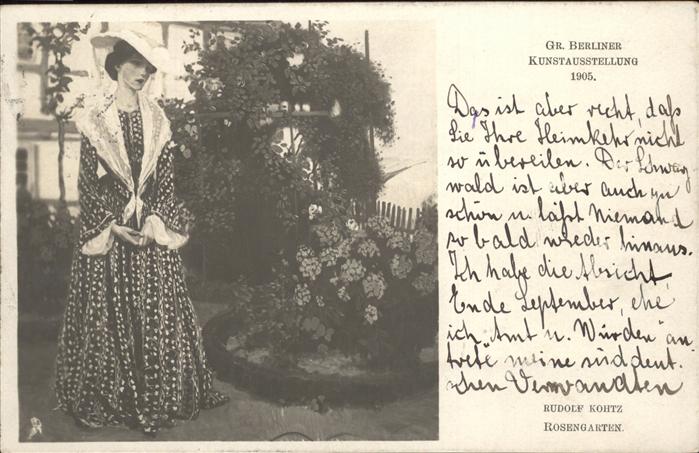 GR. BERLINER
KUNSTAUSSTELLUNG
1905.
Das ist aber recht, daß
Sie Ihre Heimkehr nicht
so übereilen. Der Schwarz
wald ist aber auch zu
schön u. läßt Niemand
so bald wieder hinaus.
Ich habe die Absicht,
Ende September, ehe
ich „Amt u. Würden" an
trete meine süddeut.
schen Verwandten
RUDOLF KOHTZ
ROSENGARTEN.